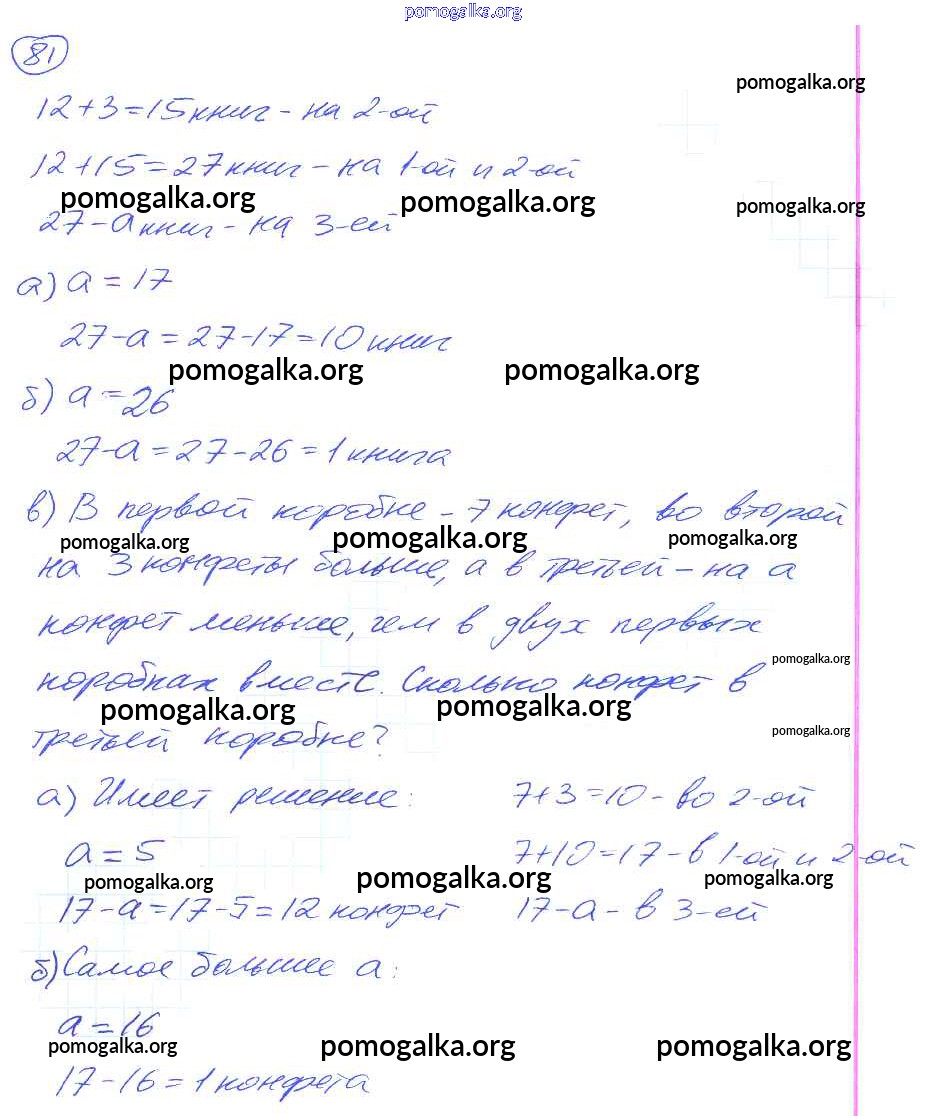 pomogalka.org
81
pomogalka.org
12+3=15 книг - на 2-ой
12+15=27 книг - на 1-ой и 2-ой
pomogalka.org pomogalka.org pomogalka.org
27-а книг - на 3-ей
а) а = 17
27-а = 27-17=10 книг
pomogalka.org pomogalka.org
б) а = 26
27-а = 27-26 = 1 книга
в) В первой коробке - 7 конфет, во второй
pomogalka.org pomogalka.org pomogalka.org
на 3 конфеты больше, а в третьей - на а
конфет меньше, чем в двух первых
pomogalka.org
коробках вместе. Сколько конфет в
pomogalka.org pomogalka.org
третьей коробке?
pomogalka.org
а) Имеет решение: 7+3=10 - во 2-ой
а = 5 7+10=17 - в 1-ой и 2-ой
pomogalka.org pomogalka.org pomogalka.org
17-а=17-5=12 конфет 17-а - в 3-ей
б) Самое большее а:
а = 16
pomogalka.org pomogalka.org pomogalka.org
17-16=1 конфета